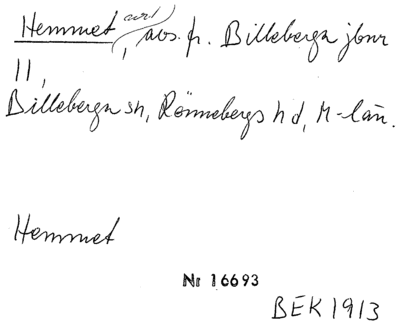 Hemmet avs. fr. Billeberga jbnr
11,
Billeberga sn, Rönnebergs hd, M-län.
Hemmet
Nr 16693
BEK 1913